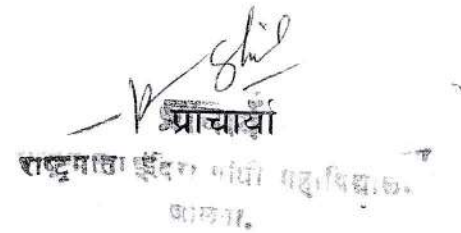 प्राचार्या
राष्ट्रमाता इंदिरा गांधी महाविद्यालय,
जालना.